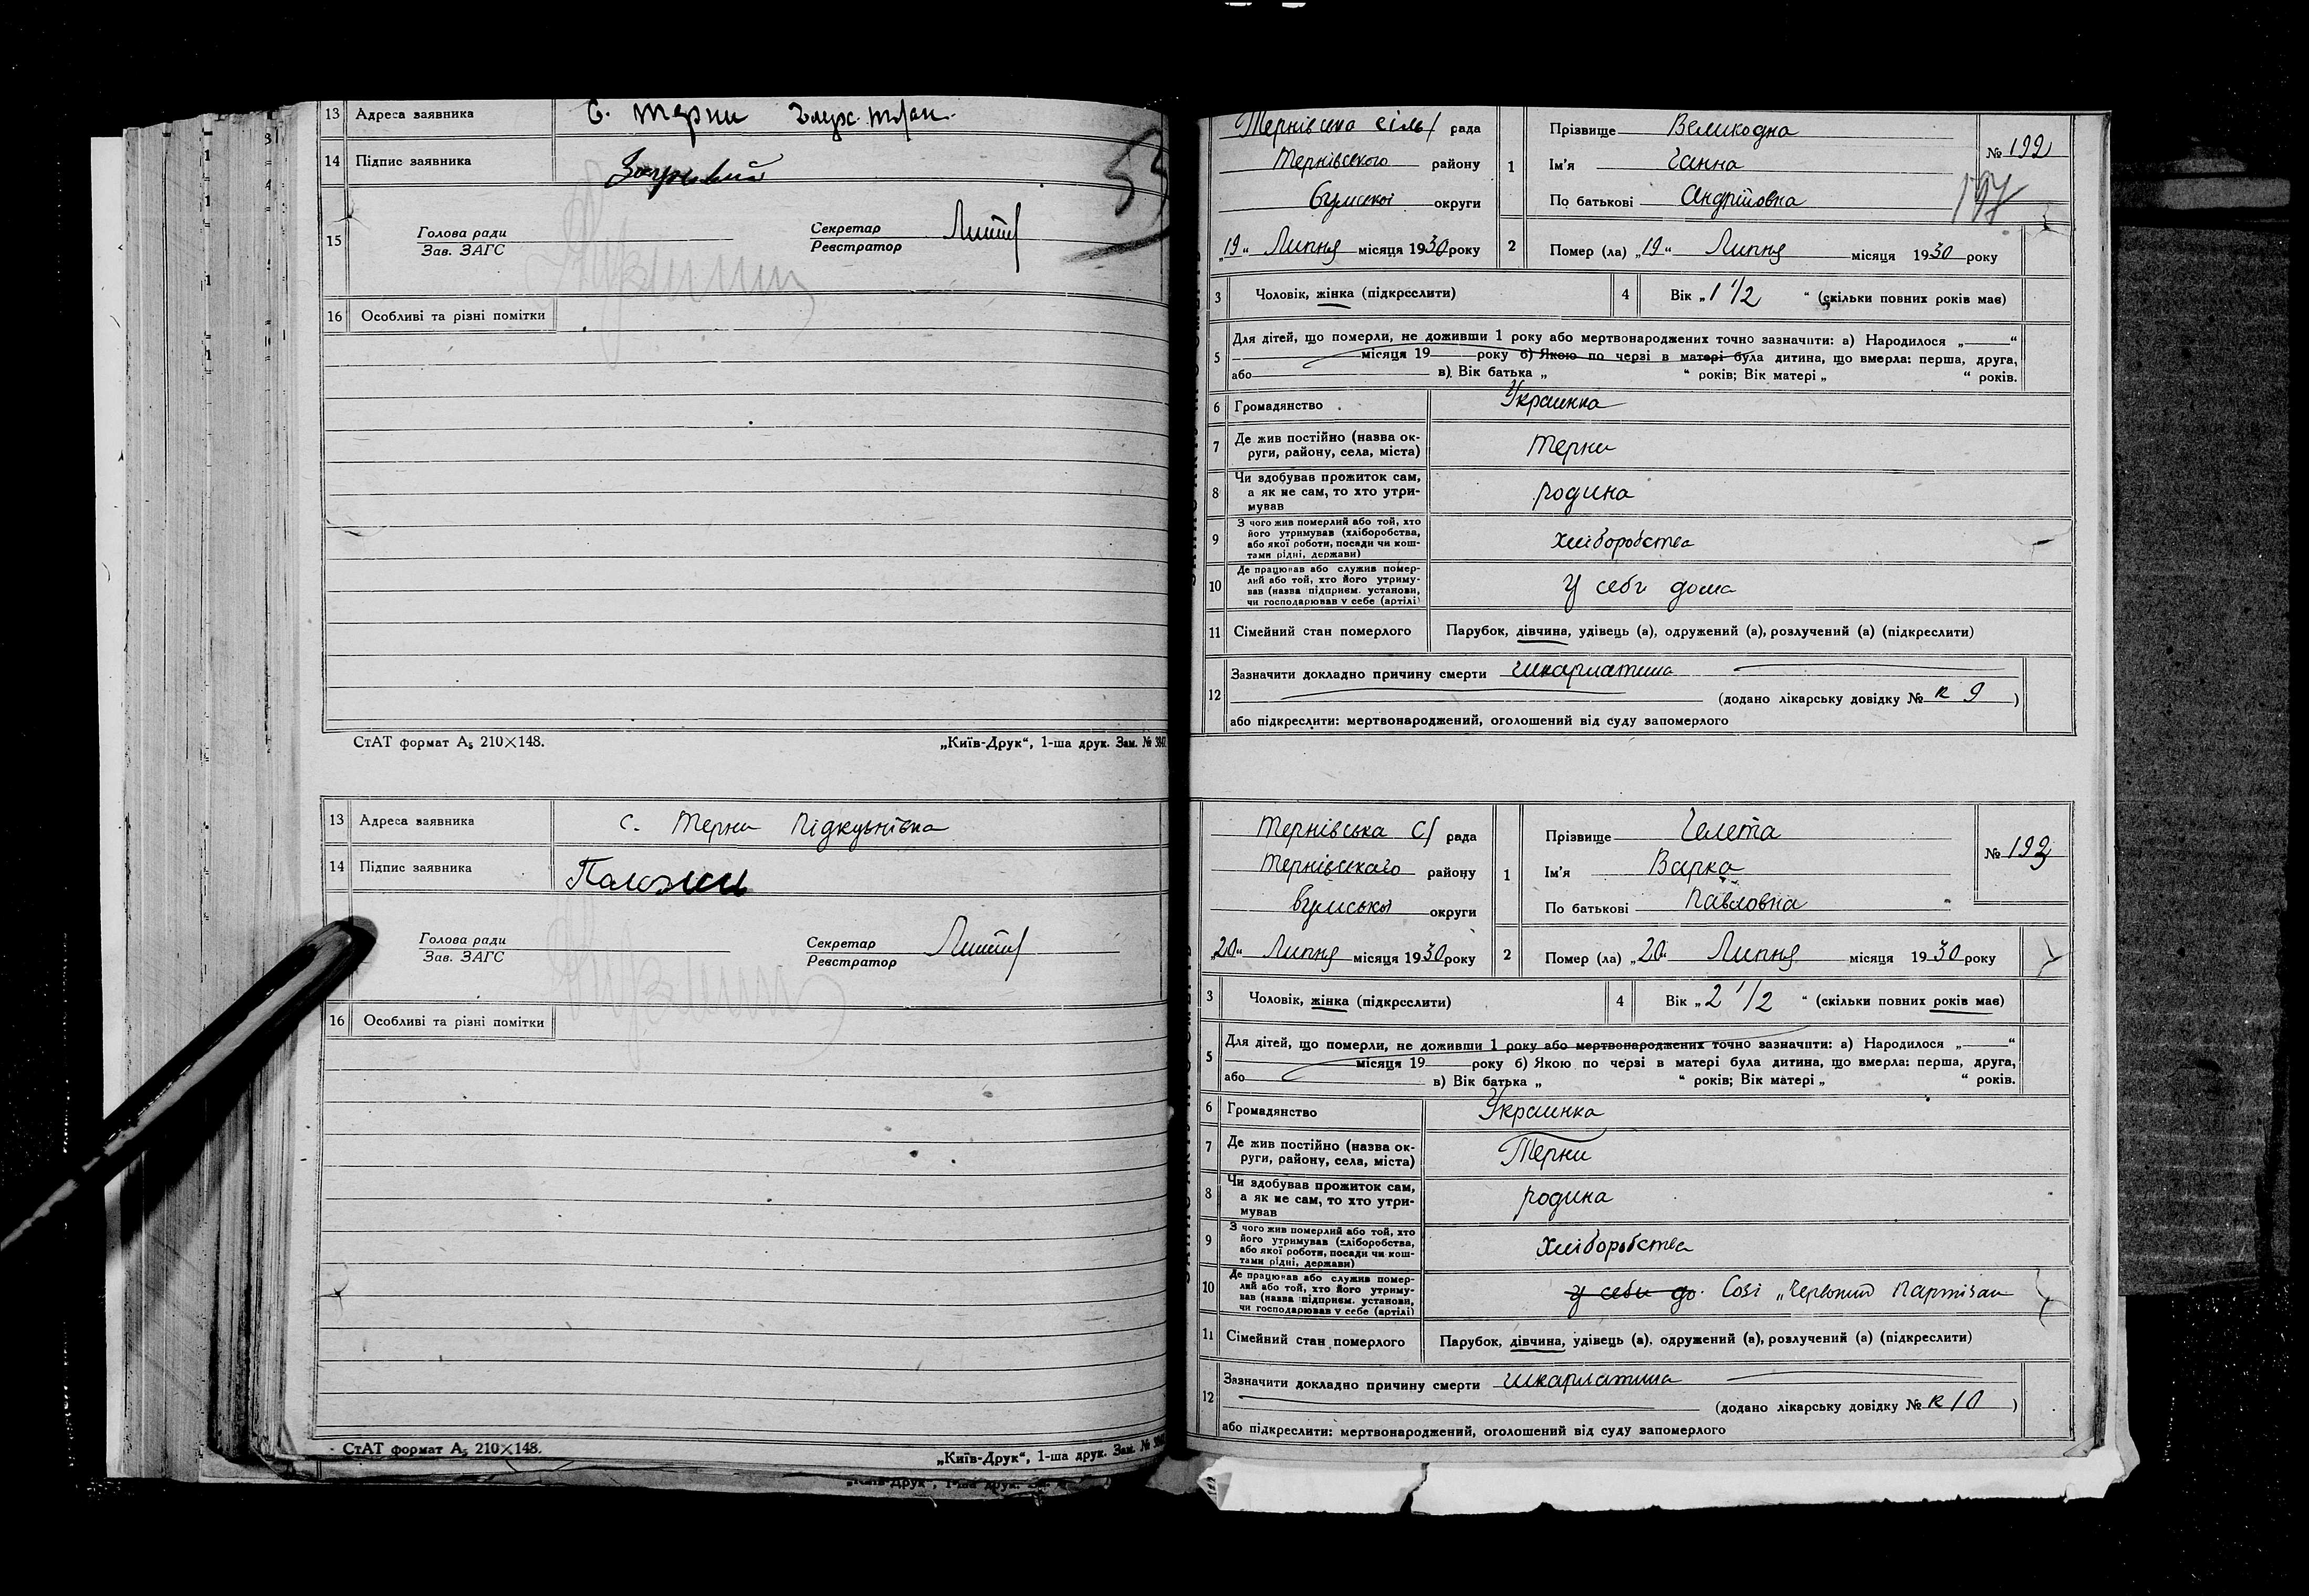 13 Адреса заявника с. Терни
14 Підпис заявника
15 Голова ради
Зав. ЗАГС
Секретар
Реєстратор
16 Особливі та різні помітки
СтАТ формат А5 210×148.
„Київ-Друк“, 1-ша друк. Зам. №
13 Адреса заявника с. Терни
14 Підпис заявника
Голова ради
Зав. ЗАГС
Секретар
Реєстратор
16 Особливі та різні помітки
СтАТ формат А5 210×148.
„Київ-Друк“, 1-ша друк. Зам. №
Тернівська сіль/ рада
Тернівського району
Сумської округи
„19“ Липня місяця 1930 року
1 Прізвище Великодна
Ім'я Ганна
По батькові Андріівовна
№ 192
197
2 Помер (ла) „19“ Липня місяця 1930 року
3 Чоловік, жінка (підкреслити)
4 Вік „1 1/2“ (скільки повних років має)
5 Для дітей, що померли, не доживши 1 року або мертвонароджених точно зазначити: а) Народилося „ “
місяця 19 року б) Якою по черзі в матері була дитина, що вмерла: перша, друга,
або в) Вік батька „ “ років; Вік матері „ “ років.
6 Громадянство Украинка
7 Де жив постійно (назва ок-
руги, району, села, міста) Терни
8 Чи здобував прожиток сам,
а як не сам, то хто утри-
мував родина
9 З чого жив померлий або той, хто
його утримував (хліборобства,
або якої роботи, посади чи кош-
тами рідні, держави) хліборобства
10 Де працював або служив помер-
лий або той, хто його утриму-
вав (назва підприєм. установи,
чи господарював у себе (артілі) У себе дома
11 Сімейний стан померлого Парубок, дівчина, удівець (а), одружений (а), розлучений (а) (підкреслити)
12 Зазначити докладно причину смерти шкарлатина
(додано лікарську довідку № к 9 )
або підкреслити: мертвонароджений, оголошений від суду запомерлого
Тернівська С/ рада
Тернівскаго району
Сумської округи
„20“ Липня місяця 1930 року
1 Прізвище Гелета
Ім'я Варка
По батькові Павловна
№ 193
2 Помер (ла) „20“ Липня місяця 1930 року
3 Чоловік, жінка (підкреслити)
4 Вік „2 1/2“ (скільки повних років має)
5 Для дітей, що померли, не доживши 1 року або мертвонароджених точно зазначити: а) Народилося „ “
місяця 19 року б) Якою по черзі в матері була дитина, що вмерла: перша, друга,
або в) Вік батька „ “ років; Вік матері „ “ років.
6 Громадянство Украинка
7 Де жив постійно (назва ок-
руги, району, села, міста) Терни
8 Чи здобував прожиток сам,
а як не сам, то хто утри-
мував родина
9 З чого жив померлий або той, хто
його утримував (хліборобства,
або якої роботи, посади чи кош-
тами рідні, держави) Хліборобства
10 Де працював або служив помер-
лий або той, хто його утриму-
вав (назва підприєм. установи,
чи господарював у себе (артілі) у себе до. Созі „Червоний Партізан
11 Сімейний стан померлого Парубок, дівчина, удівець (а), одружений (а), розлучений (а) (підкреслити)
12 Зазначити докладно причину смерти шкарлатина
(додано лікарську довідку № к 10 )
або підкреслити: мертвонароджений, оголошений від суду запомерлого